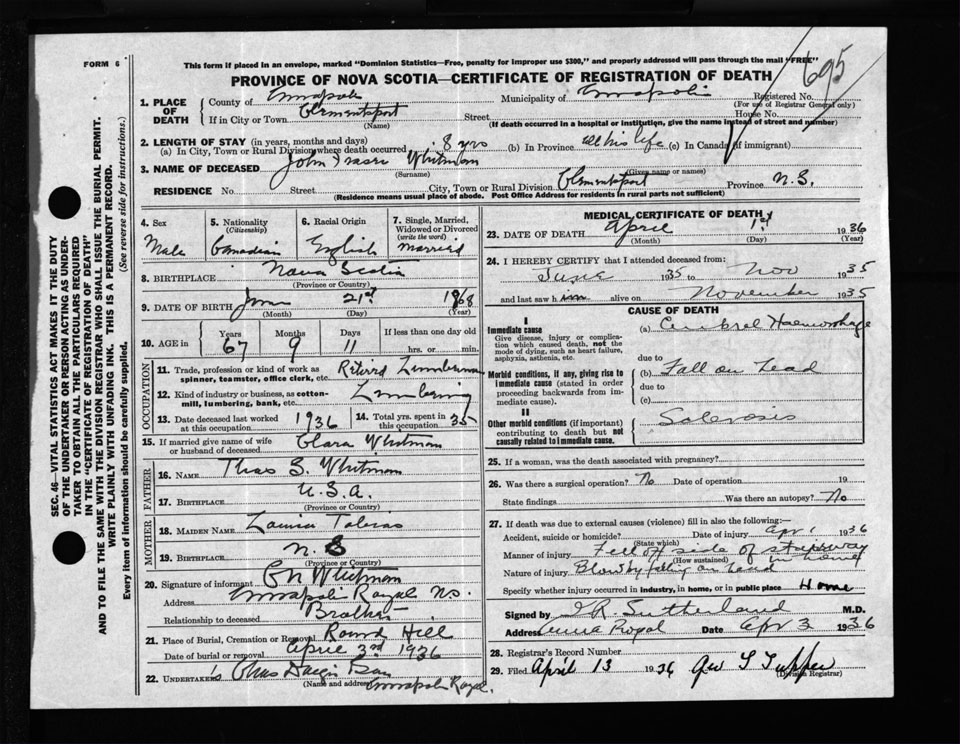 FORM 6
This form if placed in an envelope, marked "Dominion Statistics—Free, penalty for improper use $300," and properly addressed will pass through the mail "FREE"
695
PROVINCE OF NOVA SCOTIA—CERTIFICATE OF REGISTRATION OF DEATH
1. PLACE OF DEATH County of Annapolis Municipality of Annapolis Registered No.
(For use of Registrar General only)
If in City or Town Clementsport Street House No.
(Name) (If death occurred in a hospital or institution, give the name instead of street and number)
2. LENGTH OF STAY (in years, months and days)
(a) In City, Town or Rural Division where death occurred 8 yrs (b) In Province all his life (c) In Canada (if immigrant)
3. NAME OF DECEASED John Whitman
(Surname) (Given name or names)
RESIDENCE No. Street City, Town or Rural Division Clementsport Province N.S.
(Residence means usual place of abode. Post Office Address for residents in rural parts not sufficient)
4. Sex Male
5. Nationality (Citizenship) Canadian
6. Racial Origin English
7. Single, Married, Widowed or Divorced (write the word) Married
8. BIRTHPLACE Nova Scotia
(Province or Country)
9. DATE OF BIRTH 21st 1868
(Month) (Day) (Year)
10. AGE in Years 67 Months 9 Days 11 If less than one day old hrs. or min.
OCCUPATION
11. Trade, profession or kind of work as spinner, teamster, office clerk, etc. Retired Lumberman
12. Kind of industry or business, as cotton-mill, lumbering, bank, etc. Lumbering
13. Date deceased last worked at this occupation 1936
14. Total yrs. spent in this occupation 35
15. If married give name of wife or husband of deceased Clara Whitman
FATHER
16. NAME Thos S. Whitman
17. BIRTHPLACE U.S.A.
(Province or Country)
MOTHER
18. MAIDEN NAME Louisa Tobias
19. BIRTHPLACE N.S
(Province or Country)
20. Signature of informant Whitman
Address Annapolis Royal N.S.
Relationship to deceased Brother
21. Place of Burial, Cremation or Removal Round Hill
Date of burial or removal April 3rd 1936
22. UNDERTAKER'S
(Name and address) Annapolis Royal.
MEDICAL CERTIFICATE OF DEATH
23. DATE OF DEATH April 1st 1936
(Month) (Day) (Year)
24. I HEREBY CERTIFY that I attended deceased from:
June 1935 to Nov 1935
and last saw him alive on November 1935
CAUSE OF DEATH
I
Immediate cause
Give disease, injury or complication which caused death, not the mode of dying, such as heart failure, asphyxia, asthenia, etc.
(a) Cerebral Haemorrhage
due to
Morbid conditions, if any, giving rise to immediate cause (stated in order proceeding backwards from immediate cause).
(b) Fall on head
due to
(c)
II
Other morbid conditions (if important) contributing to death but not causally related to immediate cause.
Sclerosis
25. If a woman, was the death associated with pregnancy?
26. Was there a surgical operation? No Date of operation 19
State findings Was there an autopsy? No
27. If death was due to external causes (violence) fill in also the following:—
Accident, suicide or homicide? Date of injury Apr 1 1936
(State which)
Manner of injury Fell off side of stairway
(How sustained)
Nature of injury Blow by falling on head
Specify whether injury occurred in industry, in home, or in public place Home
Signed by Sutherland M.D.
Address Anna Royal Date Apr 3 1936
28. Registrar's Record Number
29. Filed April 13 1936 Tupper
(Division Registrar)
SEC. 46—VITAL STATISTICS ACT MAKES IT THE DUTY
OF THE UNDERTAKER OR PERSON ACTING AS UNDER-
TAKER TO OBTAIN ALL THE PARTICULARS REQUIRED
IN THE "CERTIFICATE OF REGISTRATION OF DEATH"
AND TO FILE THE SAME WITH THE DIVISION REGISTRAR WHO SHALL ISSUE THE BURIAL PERMIT.
WRITE PLAINLY WITH UNFADING INK. THIS IS A PERMANENT RECORD.
Every item of information should be carefully supplied. (See reverse side for instructions.)